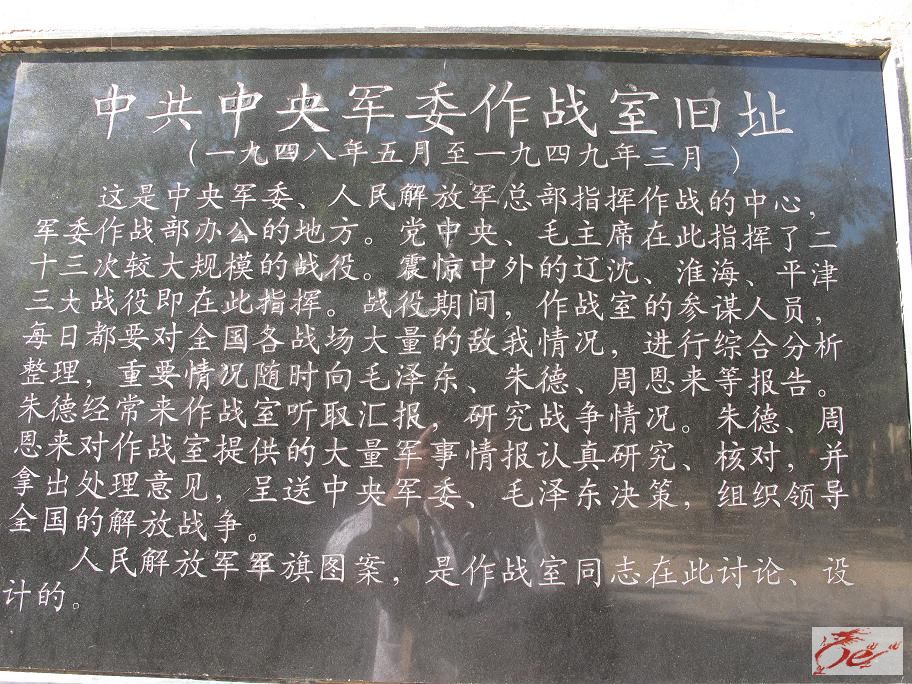 中共中央军委作战室旧址
(一九四八年五月至一九四九年三月 )
这是中央军委、人民解放军总部指挥作战的中心，
军委作战部办公的地方。党中央、毛主席在此指挥了二
十三次较大规模的战役。震惊中外的辽沈、淮海、平津
三大战役即在此指挥。战役期间，作战室的参谋人员，
每日都要对全国各战场大量的敌我情况，进行综合分析
整理，重要情况随时向毛泽东、朱德、周恩来等报告。
朱德经常来作战室听取汇报，研究战争情况。朱德、周
恩来对作战室提供的大量军事情报认真研究、核对，并
拿出处理意见，呈送中央军委、毛泽东决策，组织领导
全国的解放战争。
人民解放军军旗图案，是作战室同志在此讨论、设
计的。